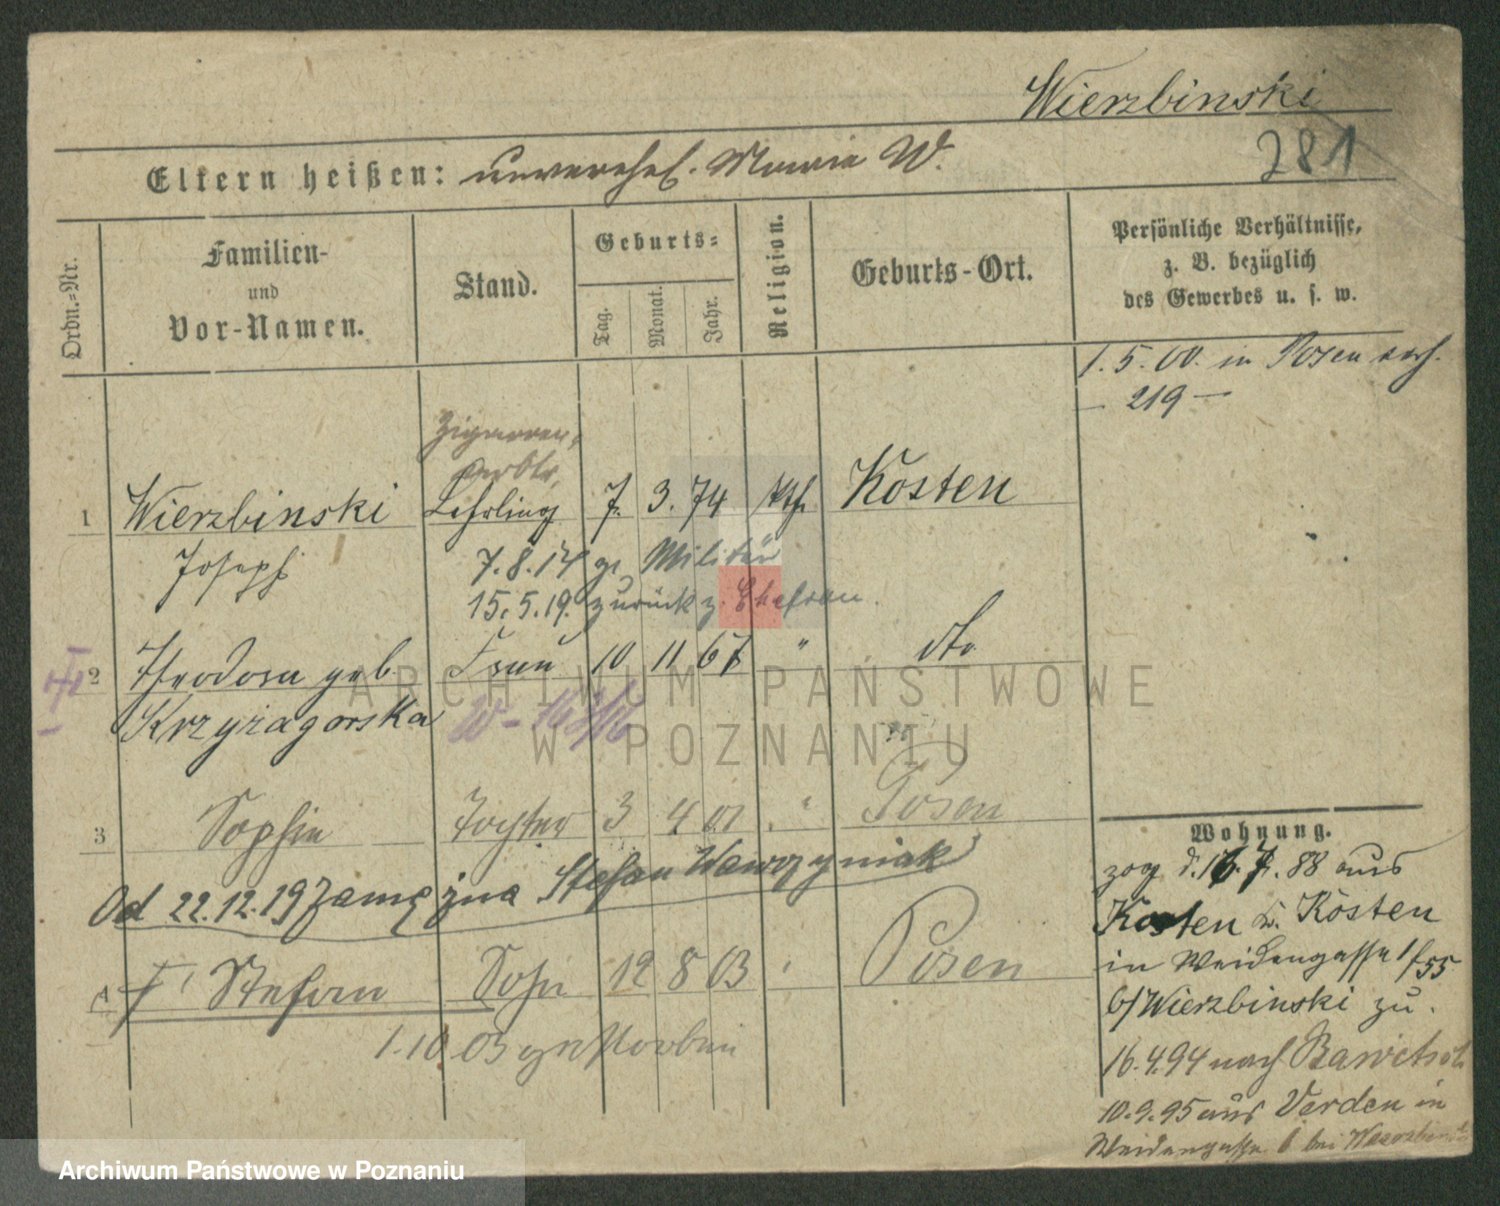 Wierzbinski
281
Eltern heißen: unverehel. Marie W.
Ordn.-Nr.
Familien-
und
Vor-Namen.
Stand.
Geburts-
Tag.
Monat.
Jahr.
Religion.
Geburts-Ort.
Persönliche Verhältnisse,
z. B. bezüglich
des Gewerbes u. s. w.
1.5.00. in Posen verh.
— 219 —
Zigarren-
arbtr.
1 Wierzbinski Lehrling 7. 3. 74 kth. Kosten
Joseph
7.8.14 z. Militär
15.5.19. zurück z. Ehefrau.
2 Theodora geb. Frau 10 11 67 " dto
Krzyżagorska
3 Sophie Tochter 3 4 01 " Posen
Od 22.12.19 zamężna Stefan Wawrzyniak
4 Stefan Sohn 12 8 03 " Posen
1.10.03 gestorben
Wohnung.
zog d. 16.7.88 aus
Kosten Kr. Kosten
in Weidengasse 1/55
b/Wierzbinski zu.
16.4.94 nach
10.9.95 aus Verden in
Weidengasse 6 bei
ARCHIWUM PAŃSTWOWE
W POZNANIU
Archiwum Państwowe w Poznaniu